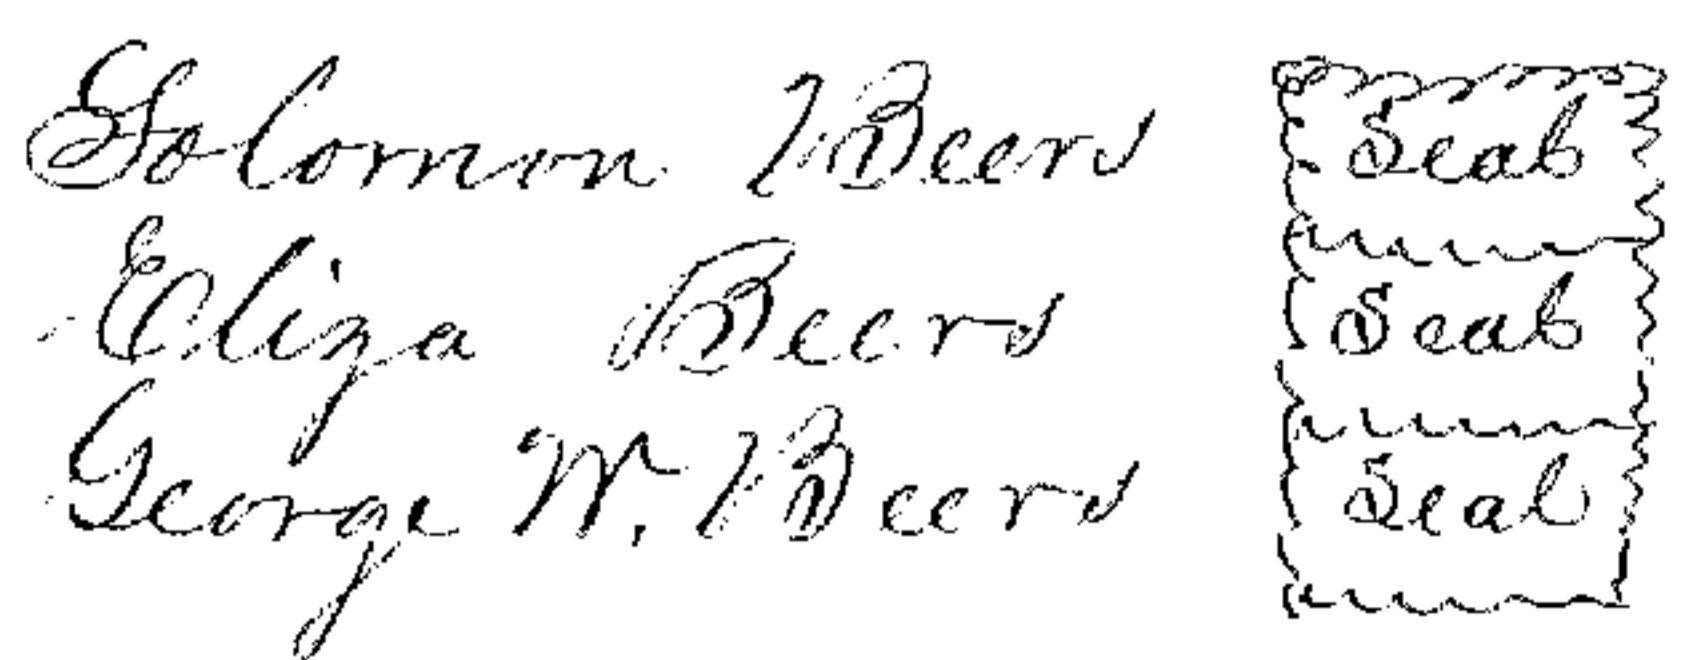 Solomon Beers Seal
Eliza Beers Seal
George W. Beers Seal